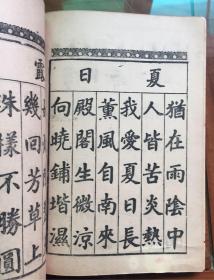 夏日
猶在雨陰中
人皆苦炎熱
我愛夏日長
薰風自南來
殿閣生微涼
向曉鋪堦濕
露
幾回芳草上
珠樣不勝圓